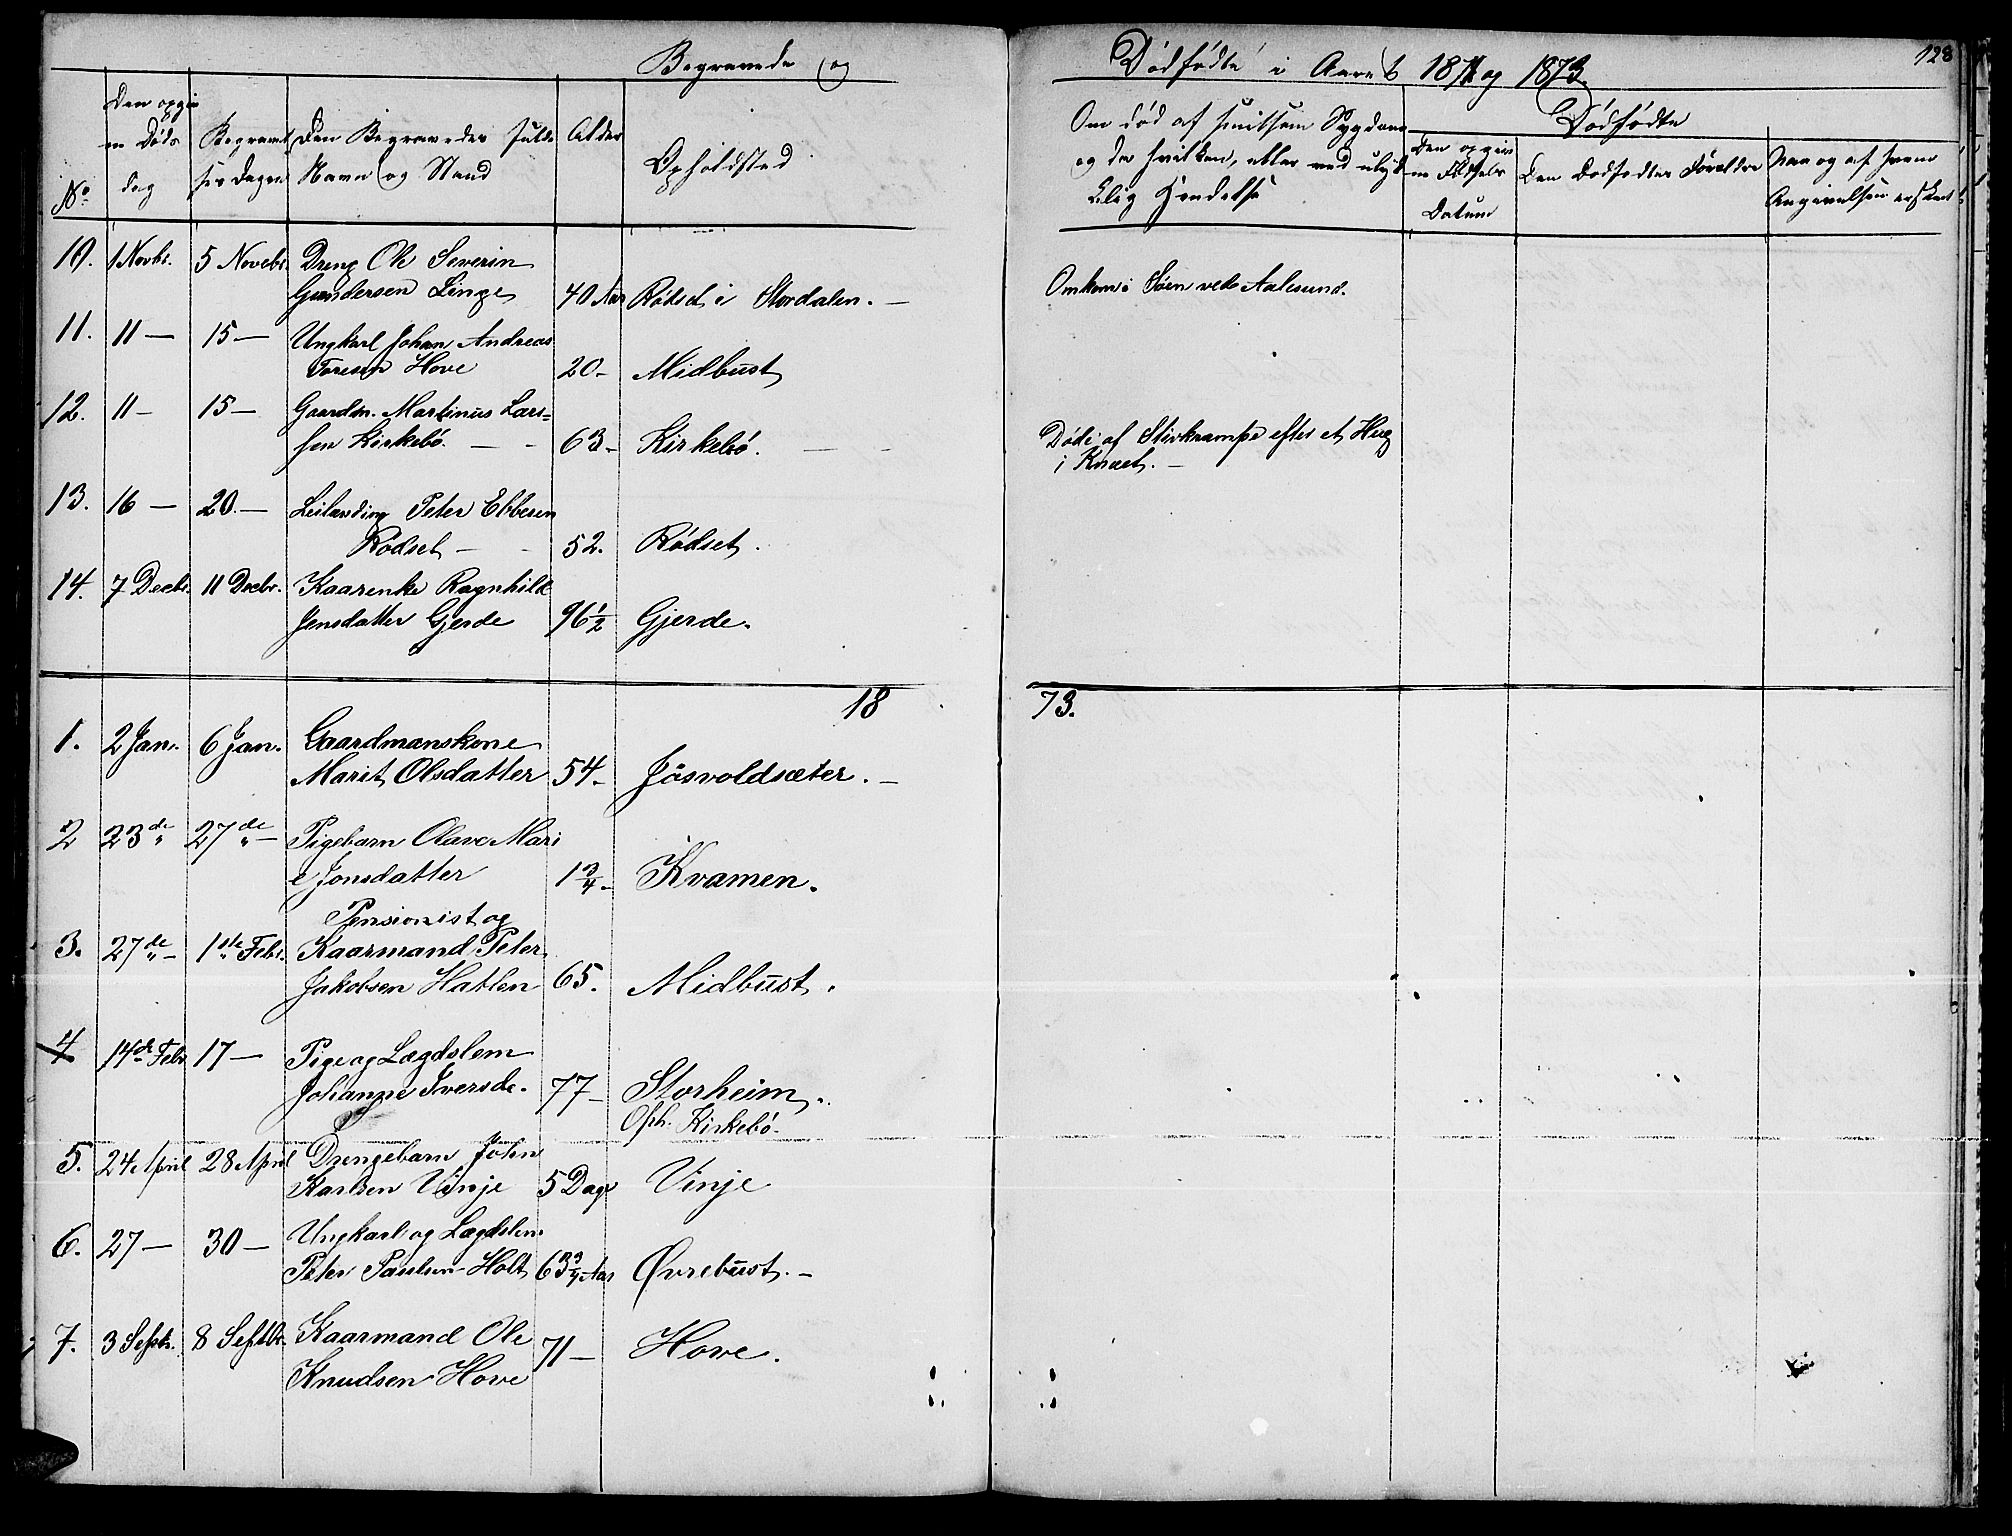 Begravede og Dødfødte i Aaret 1871 og 1873. 128
No
Den opgivne Døds dag
Begravelsesdagen
Den Begravedes fulde Navn og Stand
Alder
Opholdsted
Om død af smitsom Sygdom
og da hvilken, eller ved ulykkelig Hendelse
Dødfødte
Den opgivne Fødsels Datum
Den Dødfødtes Forældre
Naar og af hvem
Angivelsen er skeet
10. 1 Novbr. 5 Novebr. Dreng Ole Severin
Gundersen Linge 40 Aar Rødset i Stordalen. — Omkom i Søen ved Aalesund.
11. 11 — 15 — Ungkarl Johan Andreas
Toresen Hove 20 - Midbust
12. 11 - 15 — Gaardm. Martinus Lars=
sen Kirkebö. — - 63 - Kirkebö. — Døde af Stivkrampe efter et Hug
i Knæet. —
13. 16 — 20. — Leilænding Peter Ebbesen
Rödset — - 52. Rödset.
14. 7 Decbr. 11 Decbr. Kaarenke Ragnhild
Jensdatter Gjerde 96½ Gjerde.
18 73.
1. 2 Jan. 6 Jan. Gaardmanskone
Marit Olsdatter 54 - Jösvoldsæter. —
2 23de " 27de " — Pigebarn Olave Mari
e Jonsdatter 1¾ - Kvamen.
Pensionist og
3. 27de " — 1ste Febr. Kaarmand Peter
Jakobsen Hatlen 65. Midbust.
4 14de Febr 17 — Pige og Lægdslem
Johanne Iversda. 77 - Storheim.
Oph. Kirkebö.
5. 24 April 28 April Drengebarn John
Karlsen Vinje 5 Dage Vinje
6. 27 — 30 — Ungkarl og Lægdslem
Peter Paulsen Holt 63¾ Aar Øvrebust. —
7. 3 Septr. 8 Septbr. Kaarmand Ole
Knudsen Hove 71 — Hove.